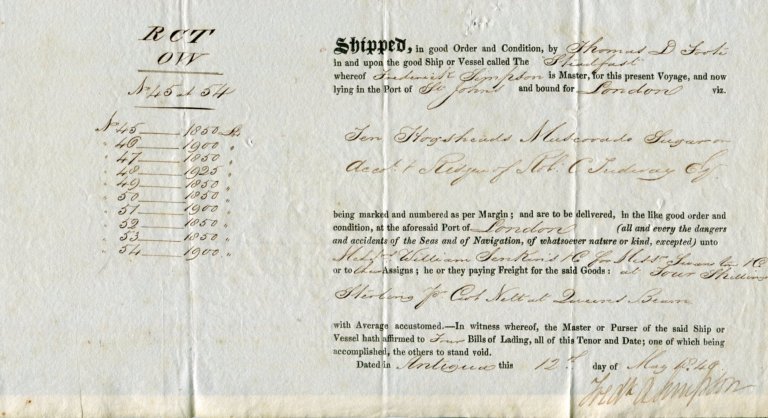 RCT
OW
No 45 at 54
No 45 — 1850 lbs
" 46 — 1900 "
" 47 — 1850 "
" 48 — 1925 "
" 49 — 1850 "
" 50 — 1850 "
" 51 — 1900 "
" 52 — 1850 "
" 53 — 1850 "
" 54 — 1900 "
Shipped, in good Order and Condition, by Thomas D Foote
in and upon the good Ship or Vessel called The Steadfast
whereof Frederick Simpson is Master, for this present Voyage, and now
lying in the Port of St Johns and bound for London viz.
Ten Hogsheads Muscovado Sugar on
Acct. & Risque of Robt. C Tudway Esq.
being marked and numbered as per Margin; and are to be delivered, in the like good order and
condition, at the aforesaid Port of London (all and every the dangers
and accidents of the Seas and of Navigation, of whatsoever nature or kind, excepted) unto
William Jenkins & C for Messrs
or to their Assigns; he or they paying Freight for the said Goods: at Four Shillings
Sterling pr Cwt Nett at Queens Beam
with Average accustomed.—In witness whereof, the Master or Purser of the said Ship or
Vessel hath affirmed to Four Bills of Lading, all of this Tenor and Date; one of which being
accomplished, the others to stand void.
Dated in Antigua this 12th day of May 1849
Fredk Simpson